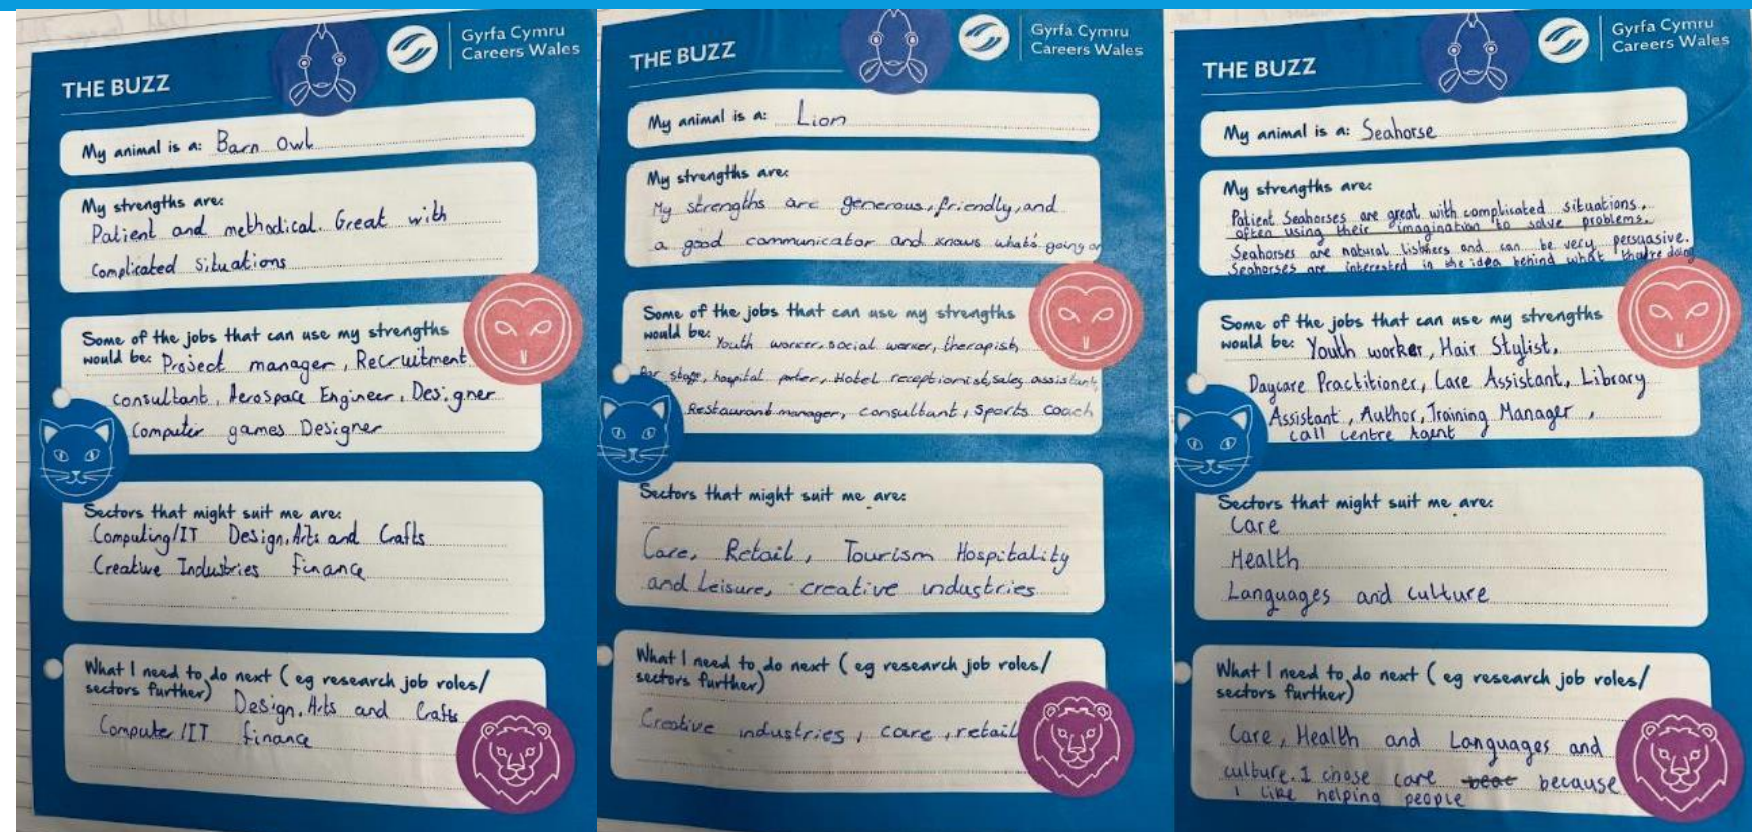 THE BUZZ
Gyrfa Cymru
Careers Wales
My animal is a: Barn Owl
My strengths are:
Patient and methodical. Great with
Complicated situations
Some of the jobs that can use my strengths
would be: Project manager, Recruitment
consultant, Aerospace Engineer, Designer
Computer games Designer
Sectors that might suit me are:
Computing/IT Design, Arts and Crafts
Creative Industries finance
What I need to do next (eg research job roles/
sectors further) Design, Arts and Crafts
Computer/IT finance
THE BUZZ
Gyrfa Cymru
Careers Wales
My animal is a: Lion
My strengths are:
My strengths are generous, friendly, and
a good communicator and knows what's going on
Some of the jobs that can use my strengths
would be: Youth worker, social worker, therapist,
Bar staff, hospital porter, Hotel receptionist, sales assistant,
Restaurant manager, consultant, sports coach
Sectors that might suit me are:
Care, Retail, Tourism Hospitality
and Leisure, creative industries
What I need to do next (eg research job roles/
sectors further)
Creative industries, care, retail
THE BUZZ
Gyrfa Cymru
Careers Wales
My animal is a: Seahorse
My strengths are:
Patient Seahorses are great with complicated situations,
often using their imagination to solve problems.
Seahorses are natural listners and can be very persuasive.
Seahorses are interested in the idea behind what doing
Some of the jobs that can use my strengths
would be: Youth worker, Hair Stylist,
Daycare Practitioner, Care Assistant, Library
Assistant, Author, Training Manager,
call centre Agent
Sectors that might suit me are:
Care
Health
Languages and culture
What I need to do next (eg research job roles/
sectors further)
Care, Health and Languages and
culture. I chose care because
I like helping people